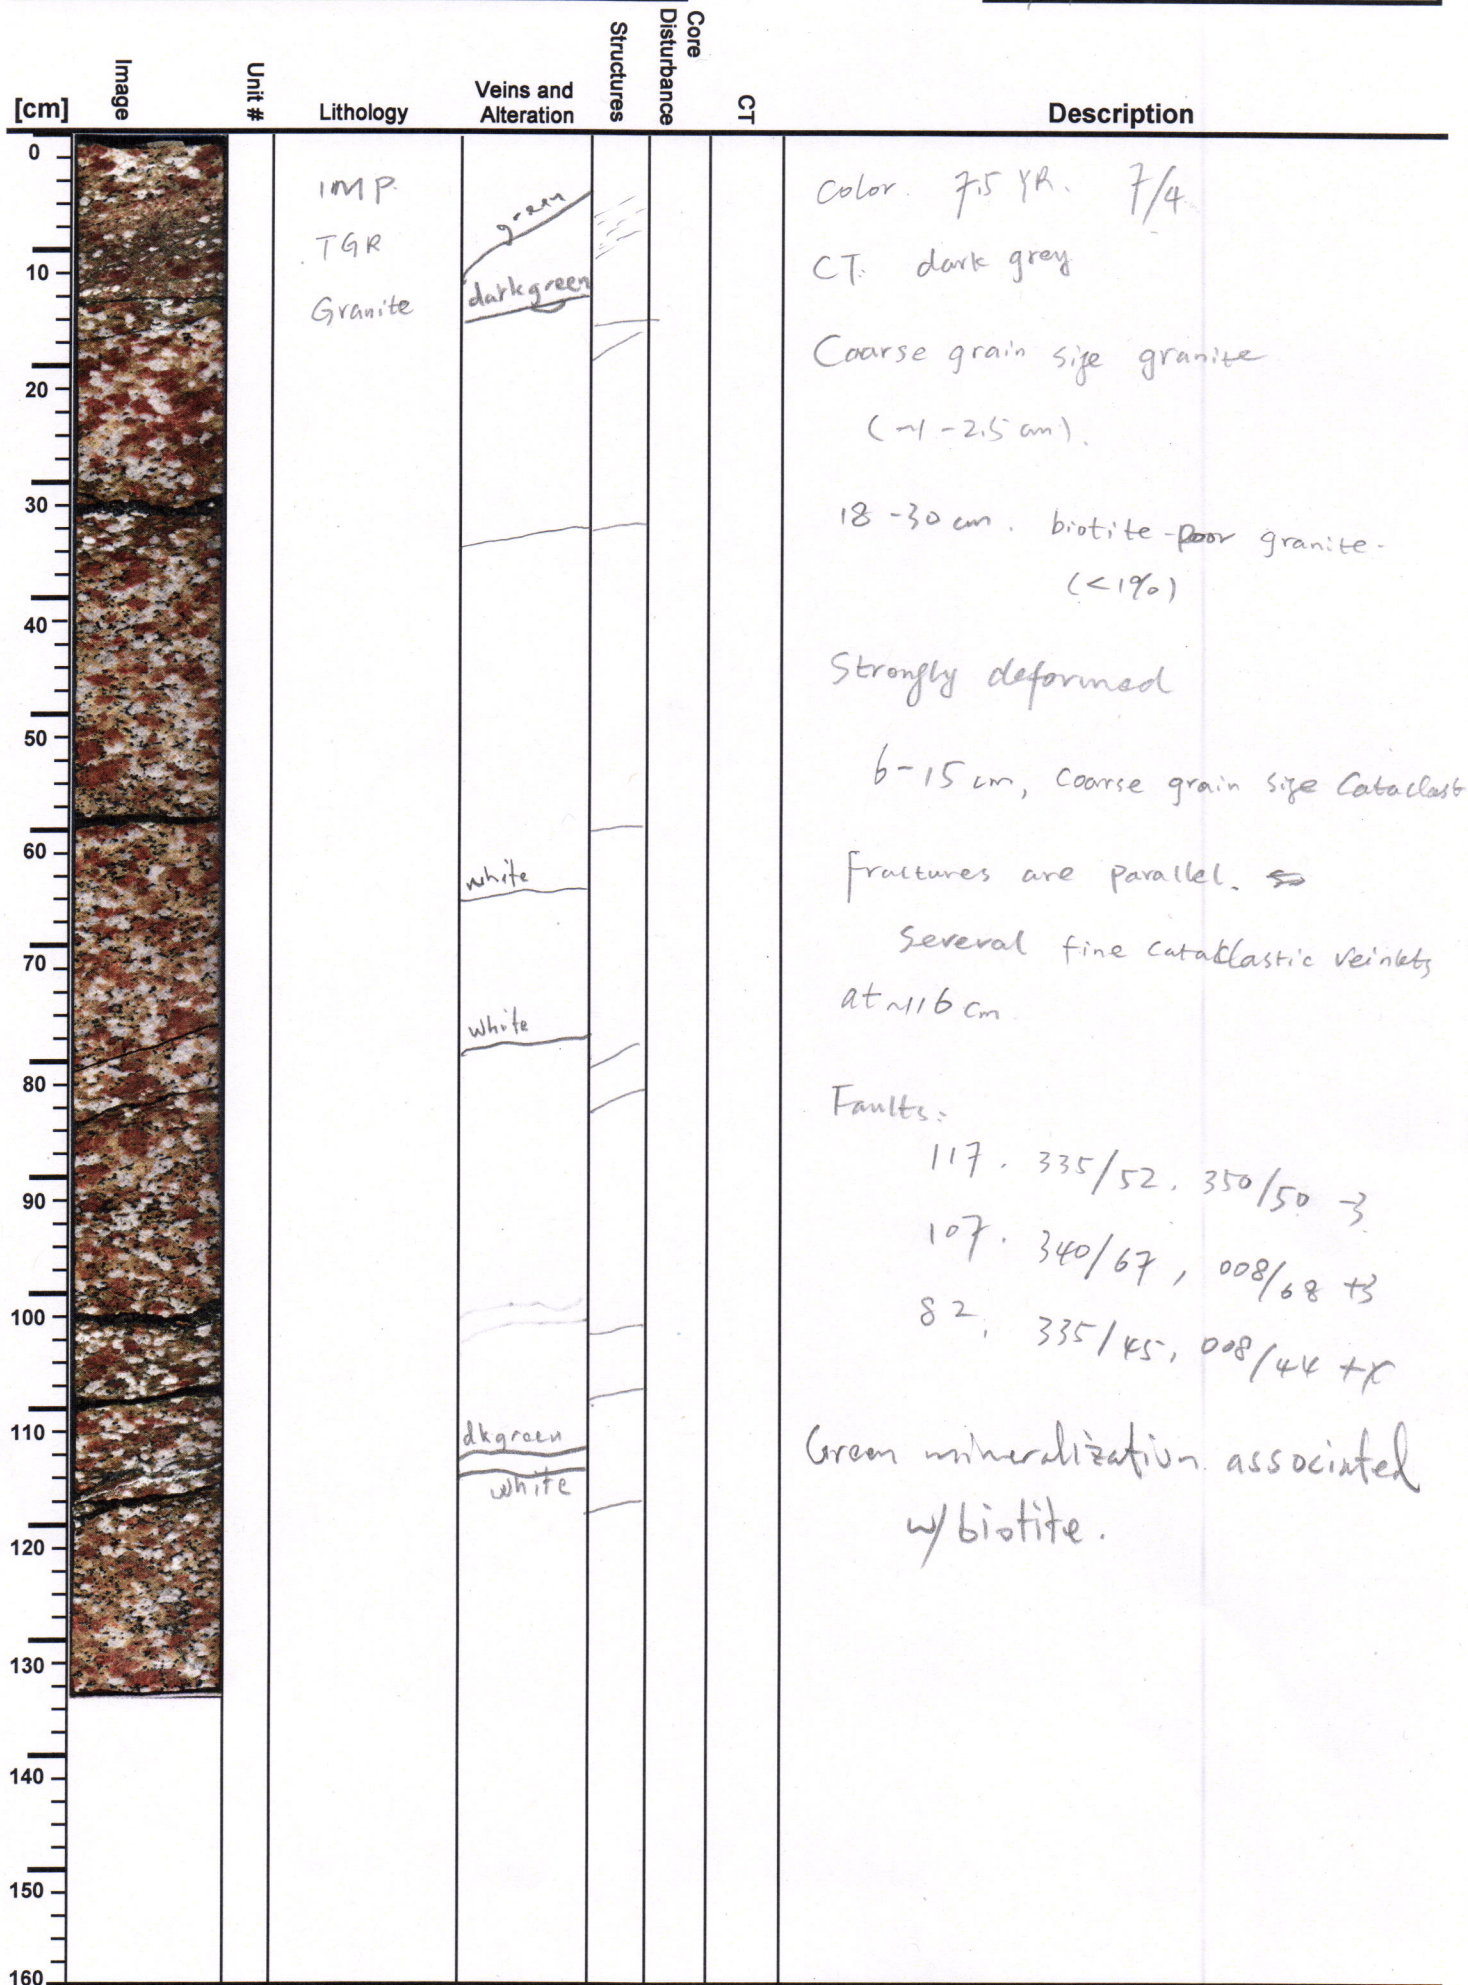 [cm]
Image
Unit #
Lithology
Veins and
Alteration
Structures
Core
Disturbance
CT
Description
0
10
20
30
40
50
60
70
80
90
100
110
120
130
140
150
160
IMP.
TGR
Granite
green
darkgreen
white
white
dkgreen
white
Color. 7.5 YR. 7/4
CT. dark grey
Coarse grain size granite
(~1-2.5 cm).
18-30 cm. biotite-poor granite.
(<1%)
Strongly deformed
6-15 cm, coarse grain size Cataclast
fractures are parallel.
several fine cataclastic veinlets
at ~116 cm
Faults:
117. 335/52, 350/50 -3
107. 340/67, 008/68 +3
82, 335/45, 008/44
Green mineralization associated
w/biotite.